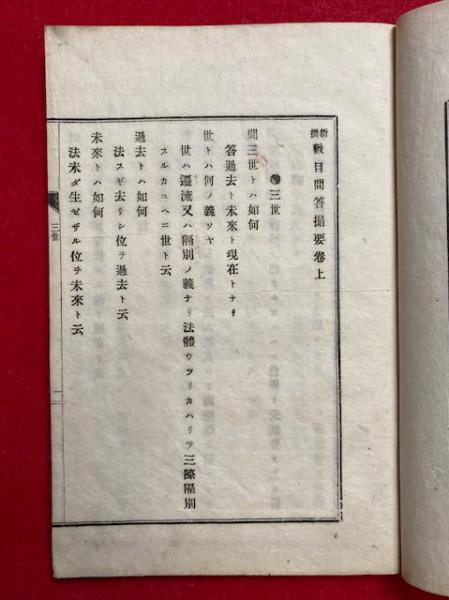 新撰數目問答撮要卷上
三世
問三世トハ如何
答過去ト未來ト現在トナリ
世トハ何ノ義ソヤ
世ハ遷流又ハ隔別ノ義ナリ法體ウツリカハリテ三際隔別
スルカユヘニ世ト云
過去トハ如何
法スギ去リシ位ヲ過去ト云
未來トハ如何
法未ダ生ゼザル位ヲ未來ト云
三世
一